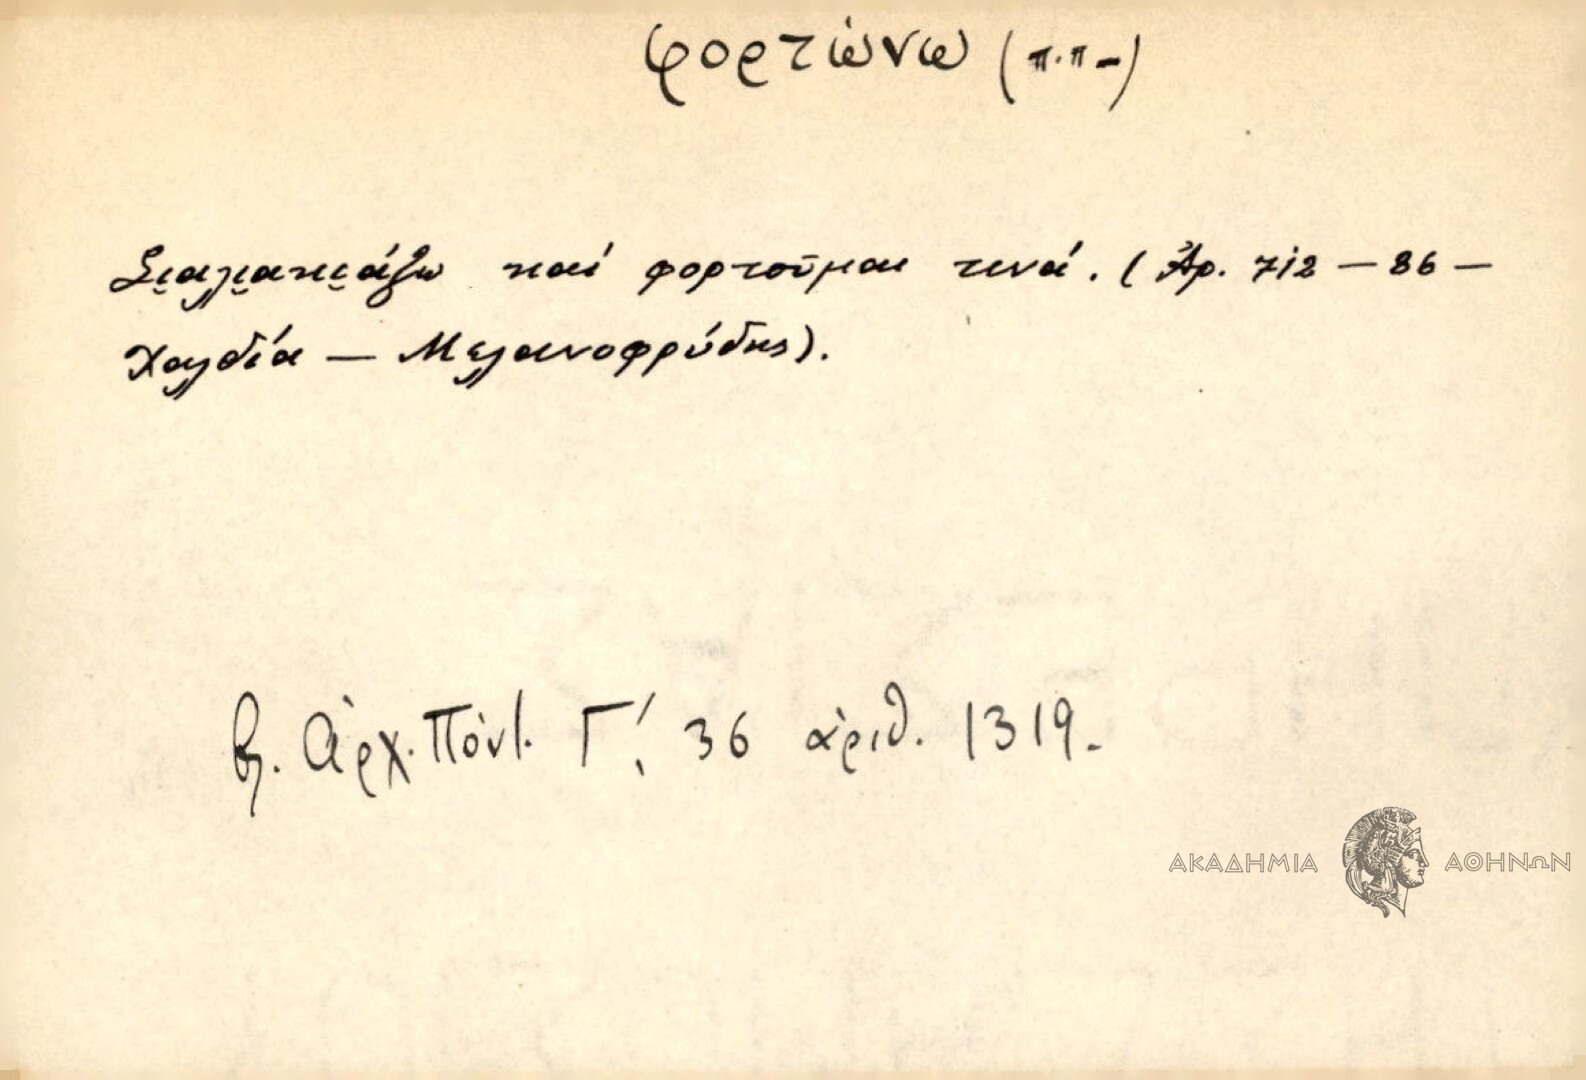 φορτώνω (π.π-)
καὶ φορτοῦμαι τινά. (Ἀρ. 712 – 86 –
Χαλδία – Μελανοφρύδης).
βλ. Ἀρχ. Πόντ. Γ'. 36 ἀριθ. 1319.-
ΑΚΑΔΗΜΙΑ ΑΘΗΝΩΝ